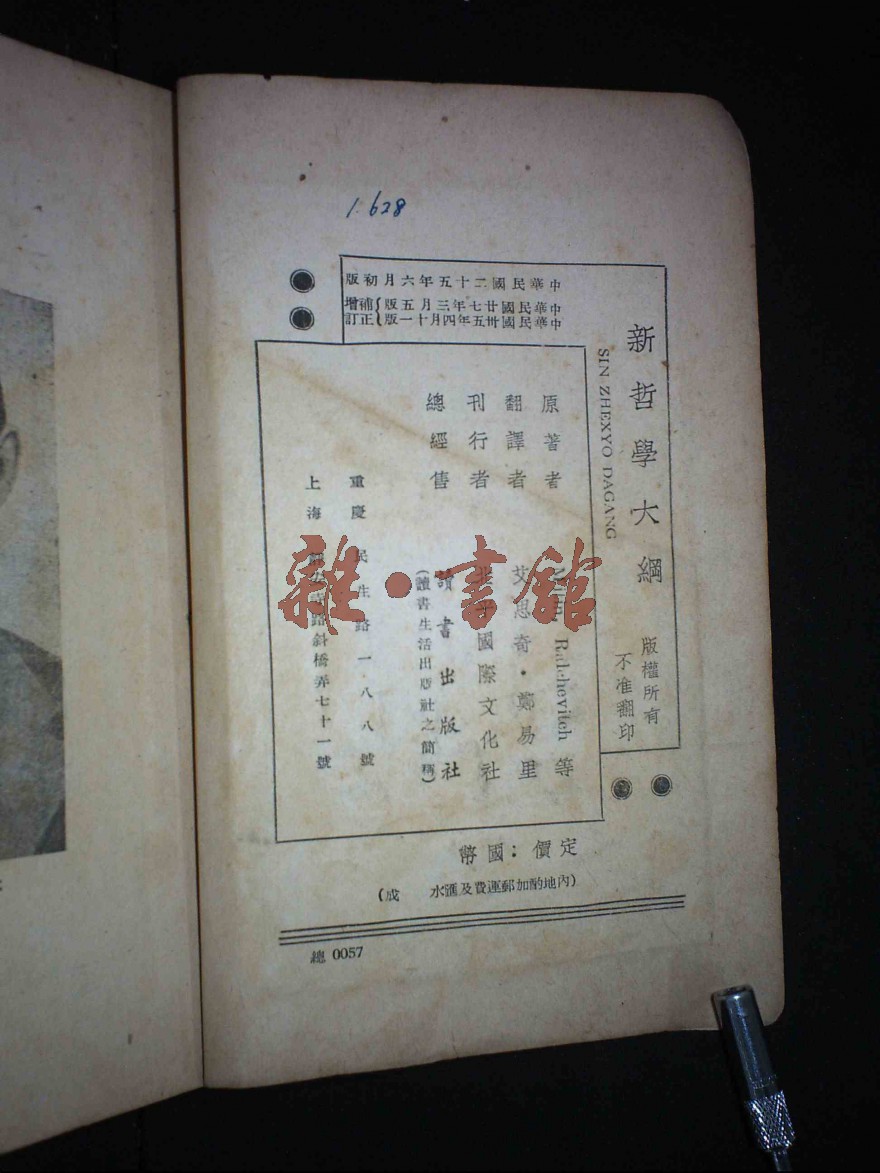 1.628
中華民國二十五年六月初版
中華民國廿七年三月五版{補增
中華民國卅五年四月十一版{正訂
新哲學大綱
SIN ZHEXYO DAGANG
版權所有
不准翻印
原著者 Ralchevitch 等
翻譯者 艾思奇·鄭易里
刊行者 國際文化社
總經售 讀書出版社
(讀書生活出版社之簡稱)
重慶 民生路一八八號
上海 靜安寺路斜橋弄七十一號
定價：國幣
(內地酌加郵運費及匯水 成)
總 0057
雜·書館